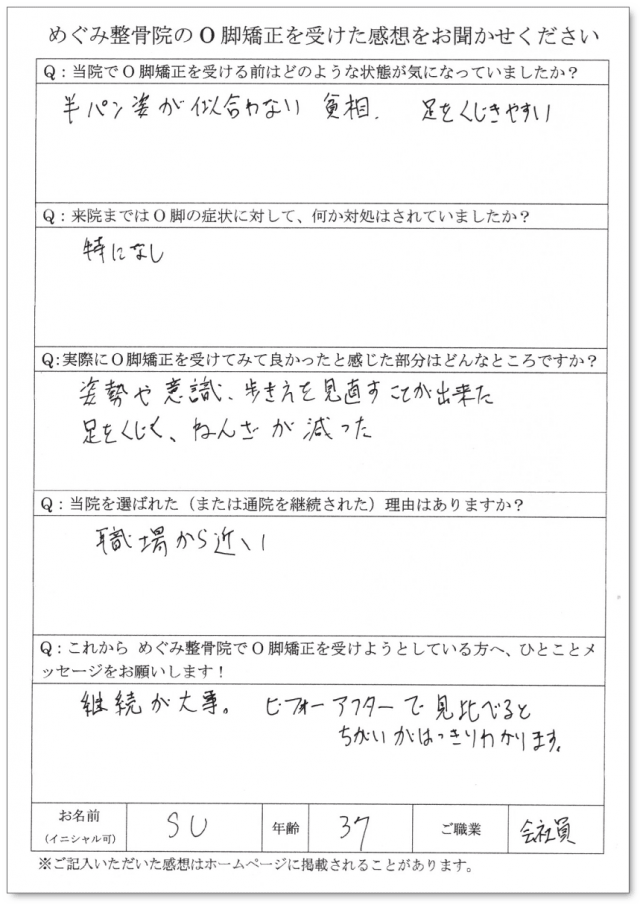 めぐみ整骨院のO脚矯正を受けた感想をお聞かせください
Q：当院でO脚矯正を受ける前はどのような状態が気になっていましたか？
半パン姿が似合わない 貧相. 足をくじきやすい
Q：来院まではO脚の症状に対して、何か対処はされていましたか？
特になし
Q:実際にO脚矯正を受けてみて良かったと感じた部分はどんなところですか？
姿勢や意識、歩き方を見直すことが出来た
足をくじく、ねんざが減った
Q：当院を選ばれた（または通院を継続された）理由はありますか？
職場から近い
Q：これから めぐみ整骨院でO脚矯正を受けようとしている方へ、ひとことメ
ッセージをお願いします！
継続が大事。 ビフォーアフターで見比べると
ちがいがはっきりわかります。
お名前 SU 年齢 37 ご職業 会社員
（イニシャル可）
※ご記入いただいた感想はホームページに掲載されることがあります。